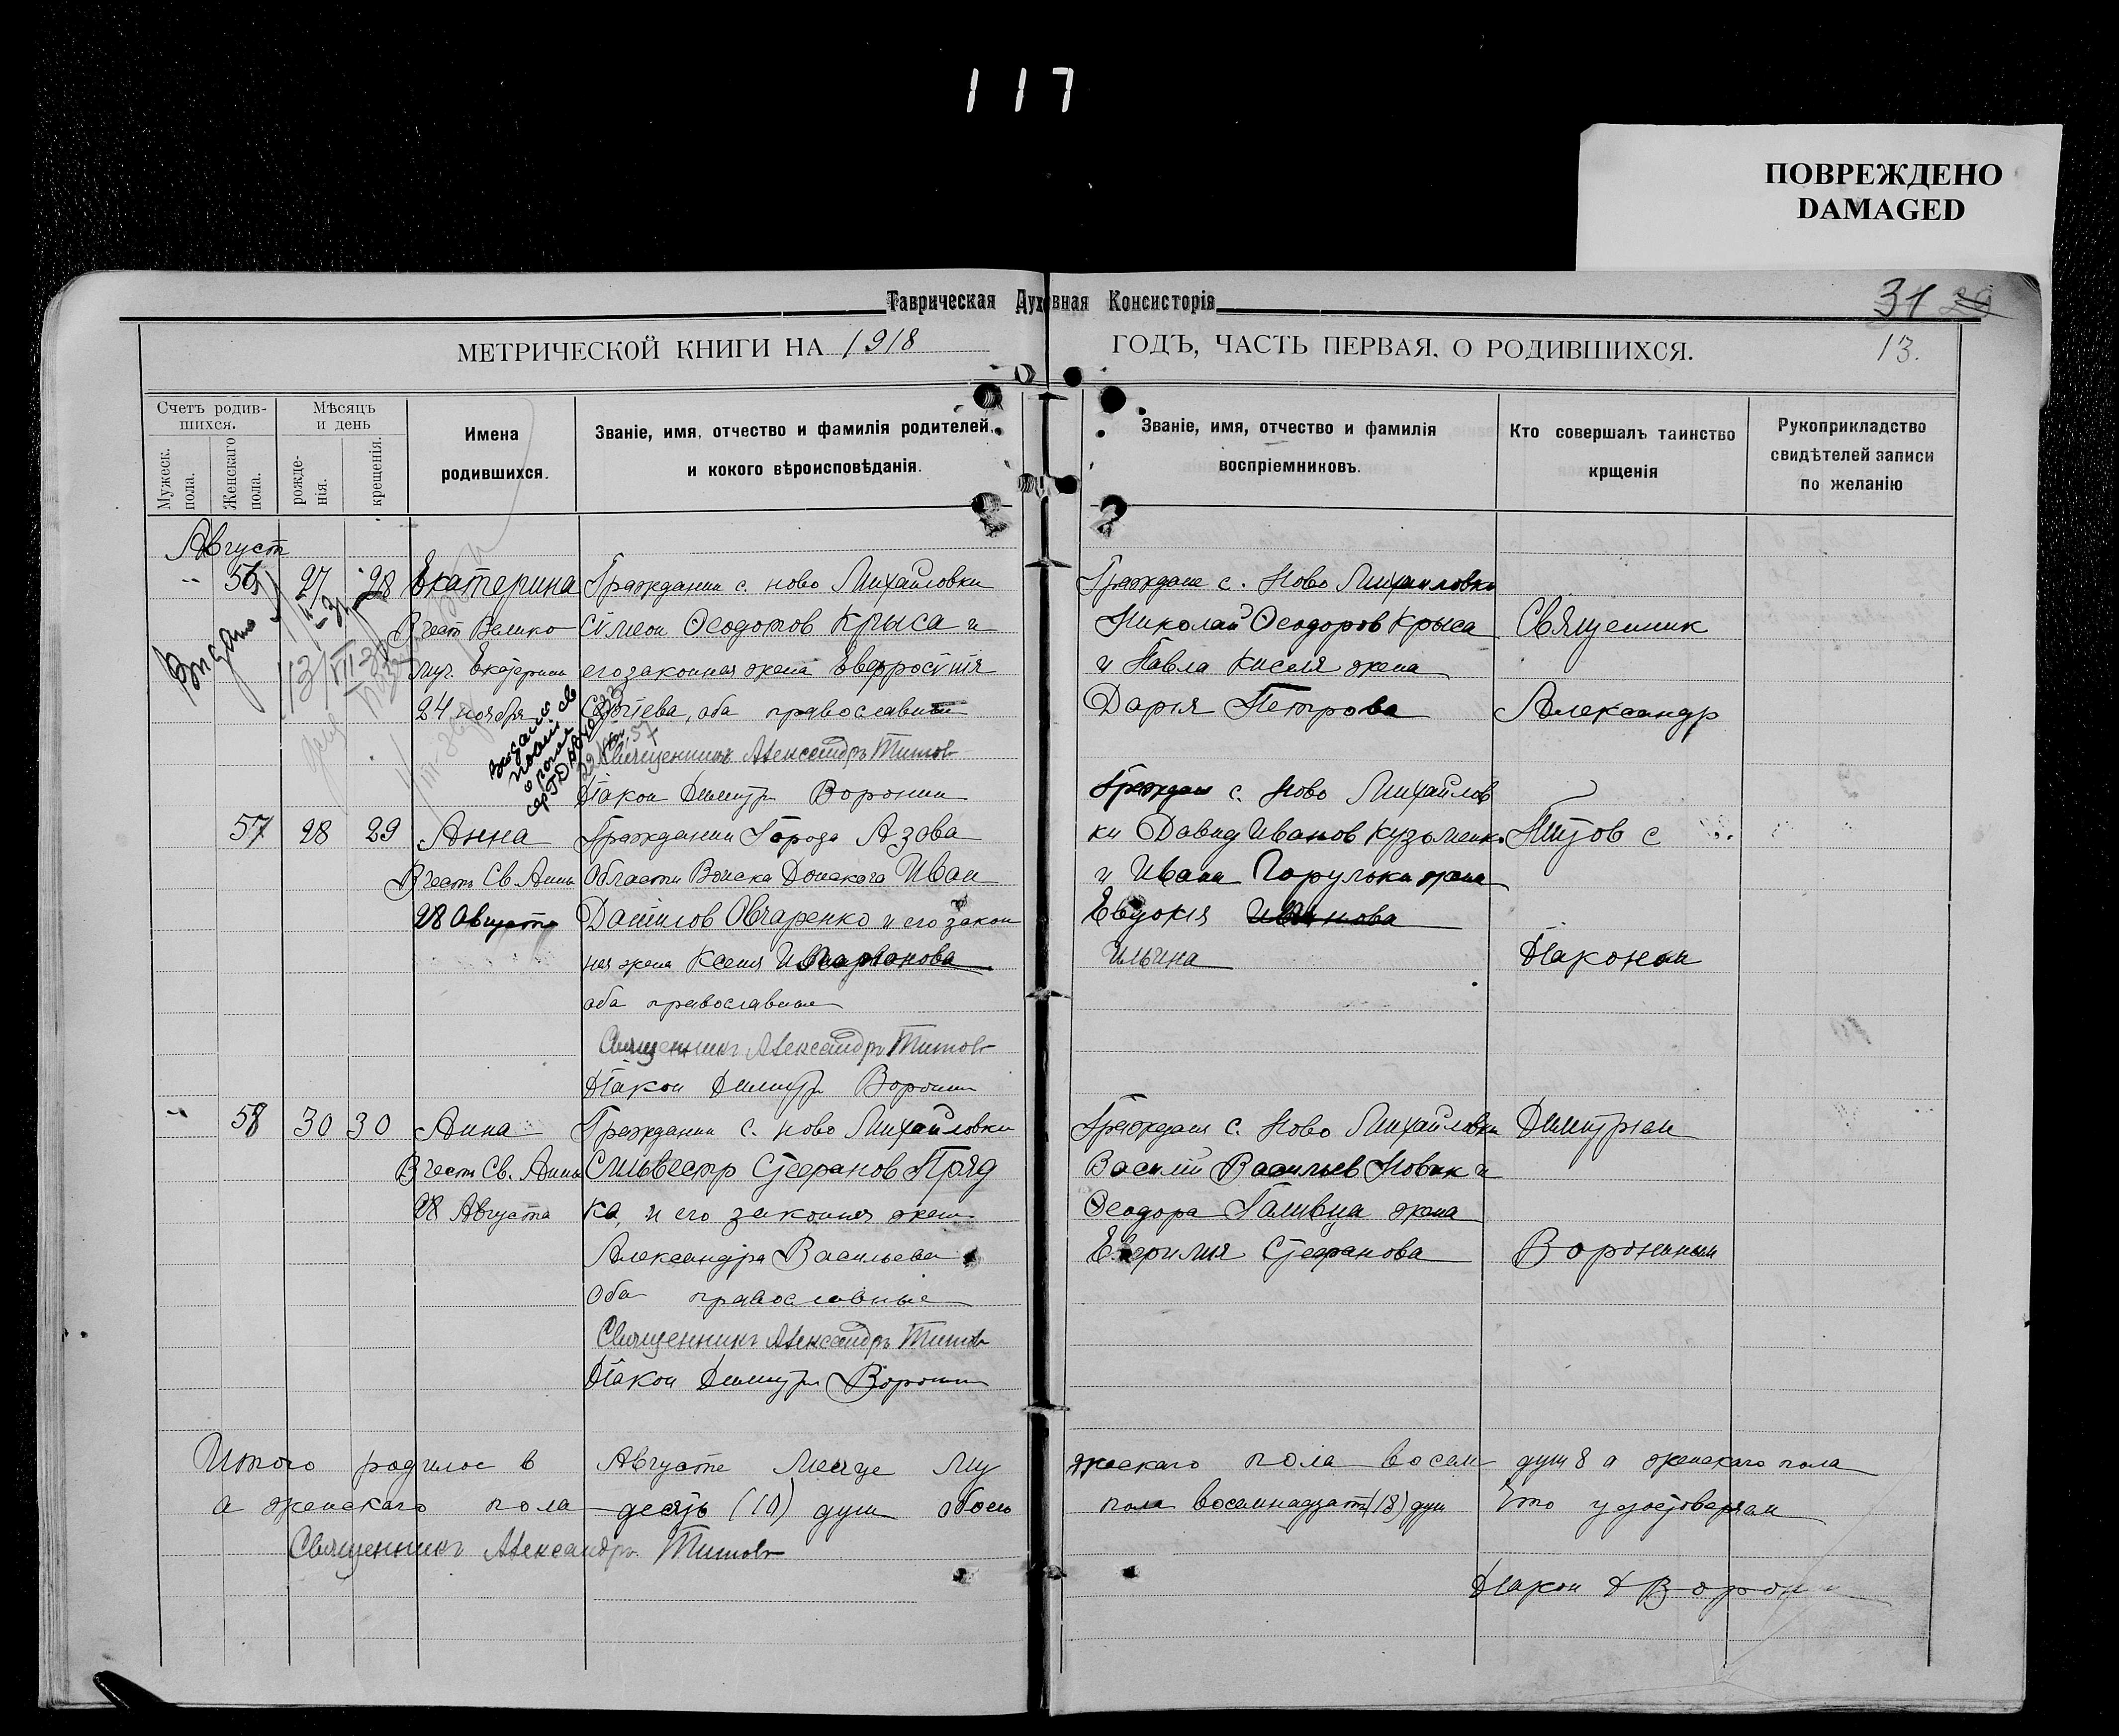 117
ПОВРЕЖДЕНО
DAMAGED
Таврическая Духовная Консисторія
31 29
МЕТРИЧЕСКОЙ КНИГИ НА 1918 ГОДЪ, ЧАСТЬ ПЕРВАЯ, О РОДИВШИХСЯ. 13.
Счетъ родив-
шихся.
Мужеск. пола.
Женскаго пола.
Мѣсяцъ
и день
рожде-
нія.
крещенія.
Имена
родившихся.
Званіе, имя, отчество и фамилія родителей,
и кокого вѣроисповѣданія.
Званіе, имя, отчество и фамилія
воспріемниковъ.
Кто совершалъ таинство
крщенія
Рукоприкладство
свидѣтелей записи
по желанію
Август
56 27 28 Екатерина
В чест Велико
муч. Екатерины
24 ноября
Гражданин с. Ново Михайловки
Симеон Феодотов Крыса и
его законная жена Евфросинія
оба православные
Священникъ Александръ Титовъ
Діакон Димитр Воронин
Граждане с. Ново Михайловки
Николай Феодоров Крыса
и Павла Киселя жена
Дарія Петрова
Священник
Александр
Титов с
Діаконом
Димитрием
Ворониным
57 28 29 Анна
В честь Св Анны
28 Августа
Гражданин Города Азова
Области Войска Донского Иван
Данилов Овчаренко и его закон
ная жена Ксения
оба православные
Священникъ Александръ Титовъ
Діакон Димитр Воронин
Граждане с. Ново Михайлов
ки Давид Иванов Кузьменко
и Ивана жена
Евдокія Иванова
Ильина
58 30 30 Анна
В честь Св. Анны
28 Августа
Гражданин с. Ново Михайловки
Сильвестр Стефанов Пряд
ка, и его законная жена
Александра Васильева
Оба православные
Священникъ Александръ Титовъ
Діакон Димитр Воронин
Граждане с. Ново Михайловки
Василій Васильев Новак и
Феодора Галивца жена
Стефанова
Итого родилос в Августе Месяце му жеского пола восем душ 8 а женскаго пола
а женскаго пола десять (10) душ обоего пола восемнадцать (18) душ Что удостоверяем
Священникъ Александръ Титовъ
Діакон Д Ворон